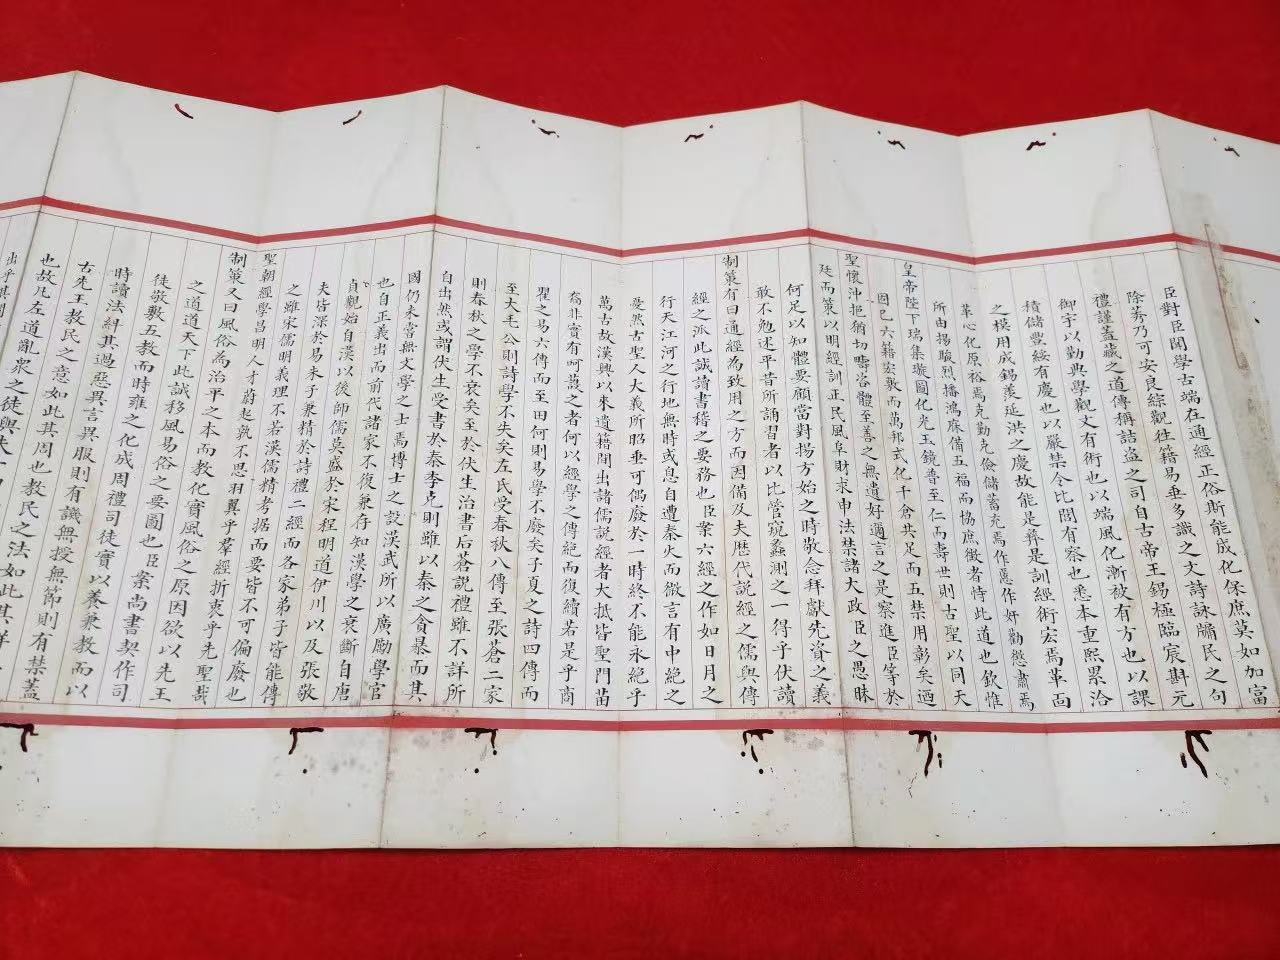 臣對臣聞學古端在通經正俗斯能成化保庶莫如加富
除莠乃可安良綜觀往籍易垂多識之文詩詠牖民之句
禮謹蓋藏之道傳稱詰盜之司自古帝王錫極臨宸斟元
御宇以勤典學觀文有術也以端風化漸被有方也以課
積儲豐綏有慶也以嚴禁令比閭有察也悉本重熙累洽
之模用成錫羨延洪之慶故能是彝是訓經術宏焉革面
革心化原裕焉克勤克儉儲蓄充焉作慝作奸勸懲肅焉
所由揚駿烈播鴻庥備五福而協庶徵者恃此道也欽惟
皇帝陛下瑞集璇圖化先玉鏡普至仁而壽世則古聖以同天
固已六籍宏敷而萬邦式化千倉共足而五禁用彰矣迺
聖懷沖挹猶切疇咨體至善之無遺好邇言之是察進臣等於
廷而策以明經訓正民風阜財求申法禁諸大政臣之愚昧
何足以知體要顧當對揚方始之時敬念拜獻先資之義
敢不勉述平昔所誦習者以比管窺蠡測之一得乎伏讀
制策有曰通經為致用之方而因備及夫歷代說經之儒與傳
經之派此誠讀書稽之要務也臣案六經之作如日月之
行天江河之行地無時或息自遭秦火而微言有中絕之
憂然古聖人大義所昭垂可偶廢於一時終不能永絕乎
萬古故漢興以來遺籍間出諸儒說經者大抵皆聖門苗
裔非實有呵護之者何以經學之傳絕而復續若是乎商
瞿之易六傳而至田何則易學不廢矣子夏之詩四傳而
至大毛公則詩學不失矣左氏受春秋八傳至張蒼二家
則春秋之學不衰矣至於伏生治書后蒼說禮雖不詳所
自出然或謂伏生受書於秦李克則雖以秦之貪暴而其
國仍未嘗無文學之士焉博士之設漢武所以廣勵學官
也自正義出而前代諸家不復兼存知漢學之衰斷自唐
貞觀始自漢以後師儒莫盛於宋程明道伊川以及張敬
夫皆深於易朱子兼精於詩禮二經而各家弟子皆能傳
之雖宋儒明義理不若漢儒精考據而要皆不可偏廢也
聖朝經學昌明人才蔚起孰不思羽翼乎羣經折衷乎先聖哉
制策又曰風俗為治平之本而教化實風俗之原因欲以先王
之道道天下此誠移風易俗之要圖也臣案尚書契作司
徒敬敷五教而時雍之化成周禮司徒實以養兼教而以
時讀法糾其過惡異言異服則有識無授無節則有禁蓋
古先王教民之意如此其周也教民之法如此其詳
也故凡左道亂眾之徒與夫